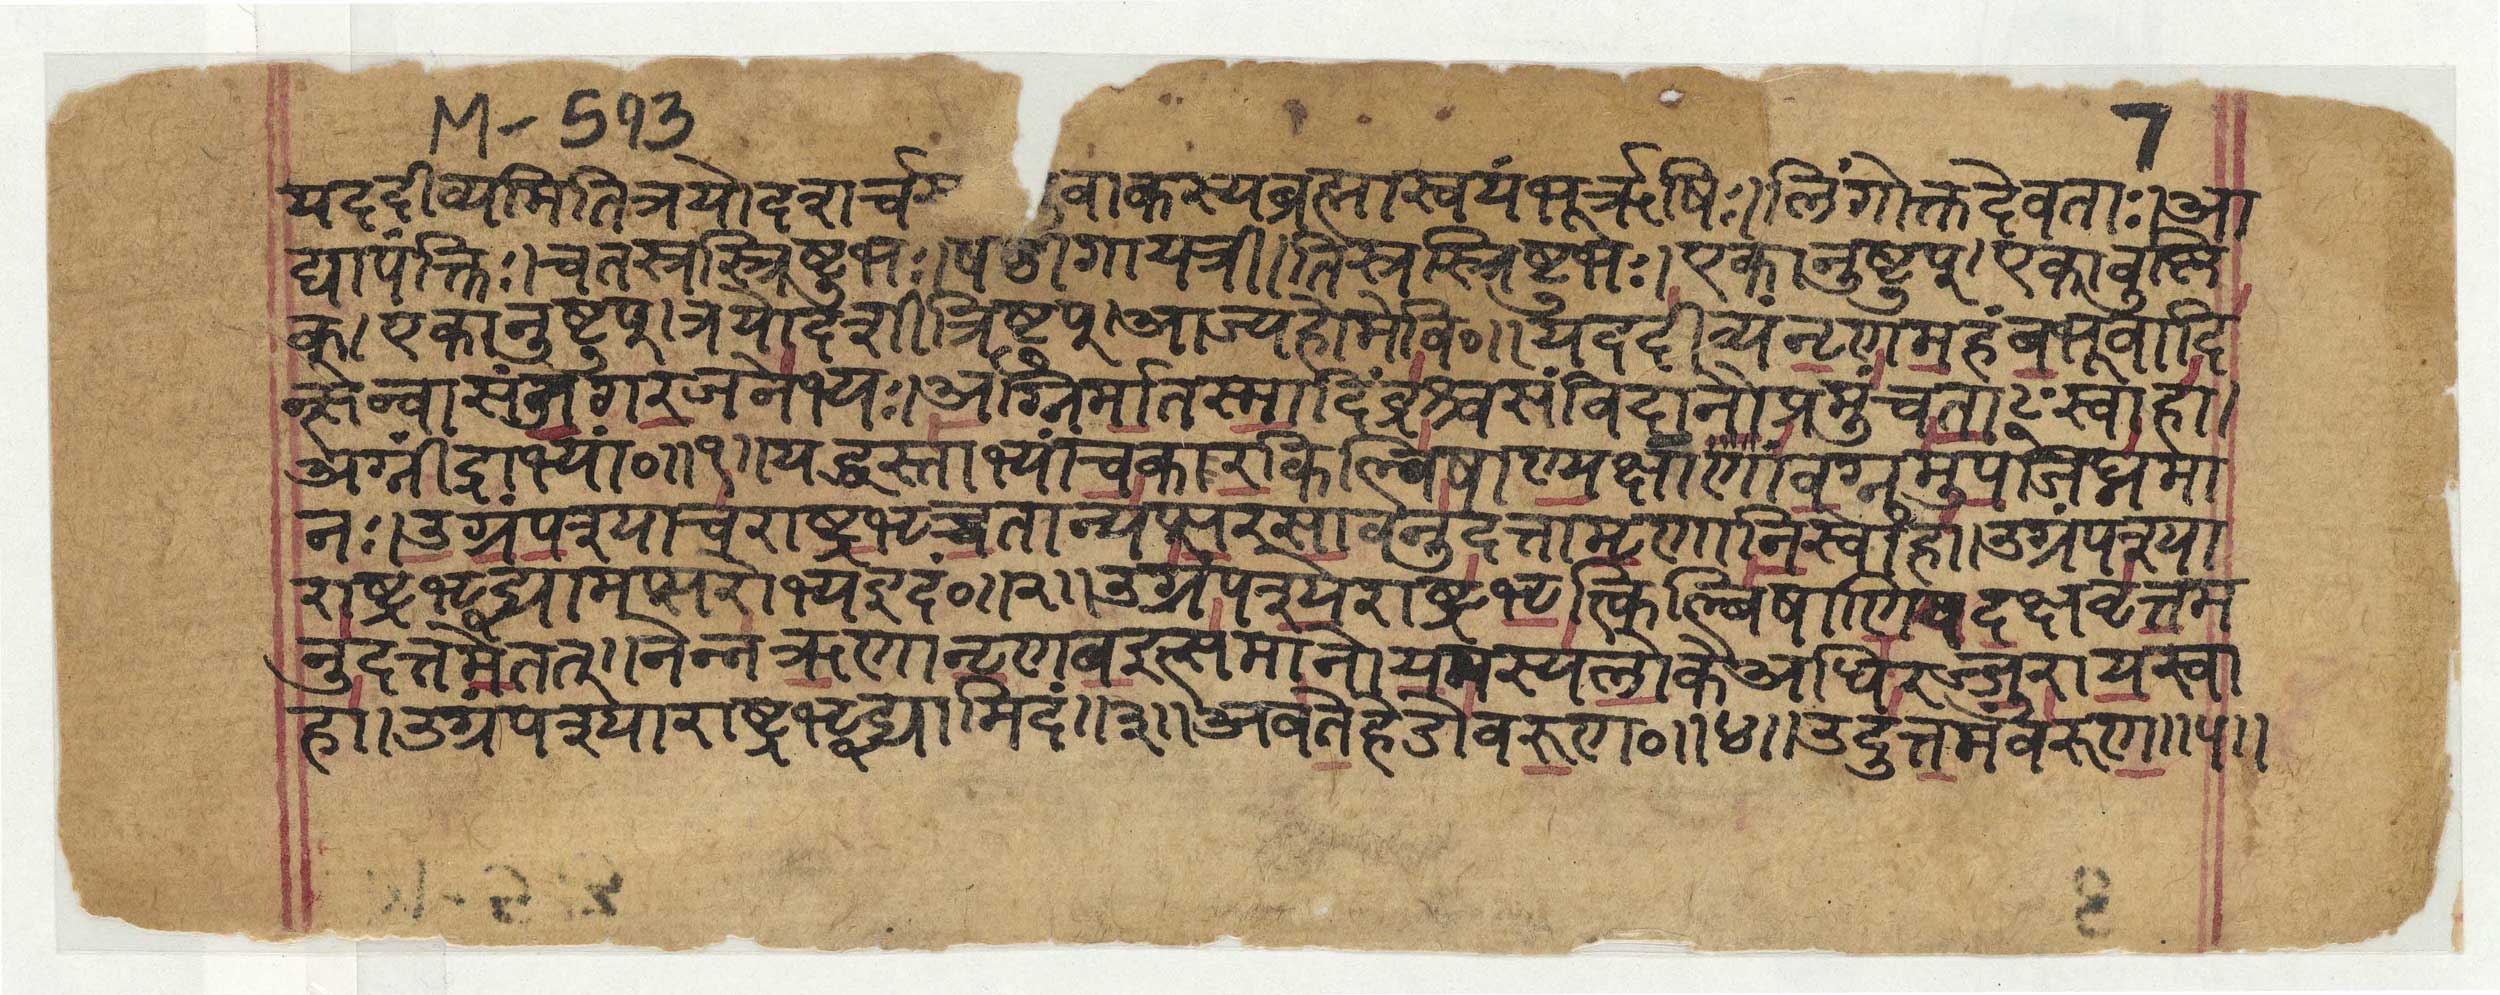 M-593
7
यददीव्यमितित्रयोदशर्च वाकस्यब्रह्मास्वयंभूर्ऋषिः।लिंगोक्तदेवताः।आ
द्यापंक्तिः।चतस्रस्त्रिष्टुभः।षष्ठीगायत्री।तिस्रस्त्रिष्टुभः।एकानुष्टुप्।एका
क्।एकानुष्टुप्।त्रयोदशीत्रिष्टुप्।आज्यहोमेवि०॥यददीव्यंनृणमहंबभूवादि
त्सन्वासंजगरजनेभ्यः।अग्निर्मातस्मादिंद्रश्चसंविदानौप्रमुंचताꣳस्वाहा।
अग्नींद्राभ्यां०॥१॥यद्धस्ताभ्यांचकारकिल्बिषाण्यक्षाणांवग्नुमुपजिघ्नमा
नः।उग्रंपश्याचराष्ट्रभृच्चतान्यप्सरसावनुदत्तामृणानिस्वाहा।उग्रंपश्या
राष्ट्रभृद्भ्यामप्सरोभ्यइदं०॥२॥उग्रंपश्येराष्ट्रभृत्किल्बिषाणियदक्षवृत्तम
नुदत्तमेतत्।नेन्नऋणानृणवइत्समानोयमस्यलोकेअधिरज्जुरायस्वा
हा।उग्रंपश्याराष्ट्रभृद्भ्यामिदं॥३॥अवतेहेडोवरुण०॥४॥उदुत्तमंवरुण॥५॥